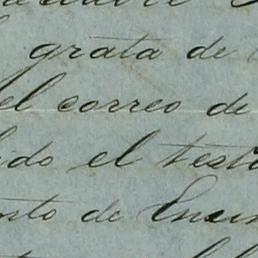 grata de
el correo de
ido el test
sto de Ener